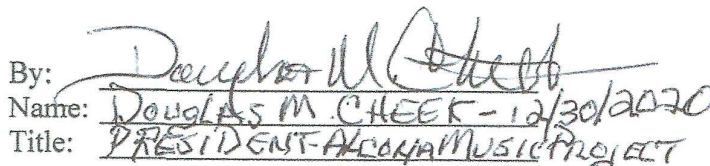 By: Douglas M. Cheek
Name: DOUGLAS M. CHEEK - 12/30/2020
Title: PRESIDENT - ALCONA MUSIC PROJECT